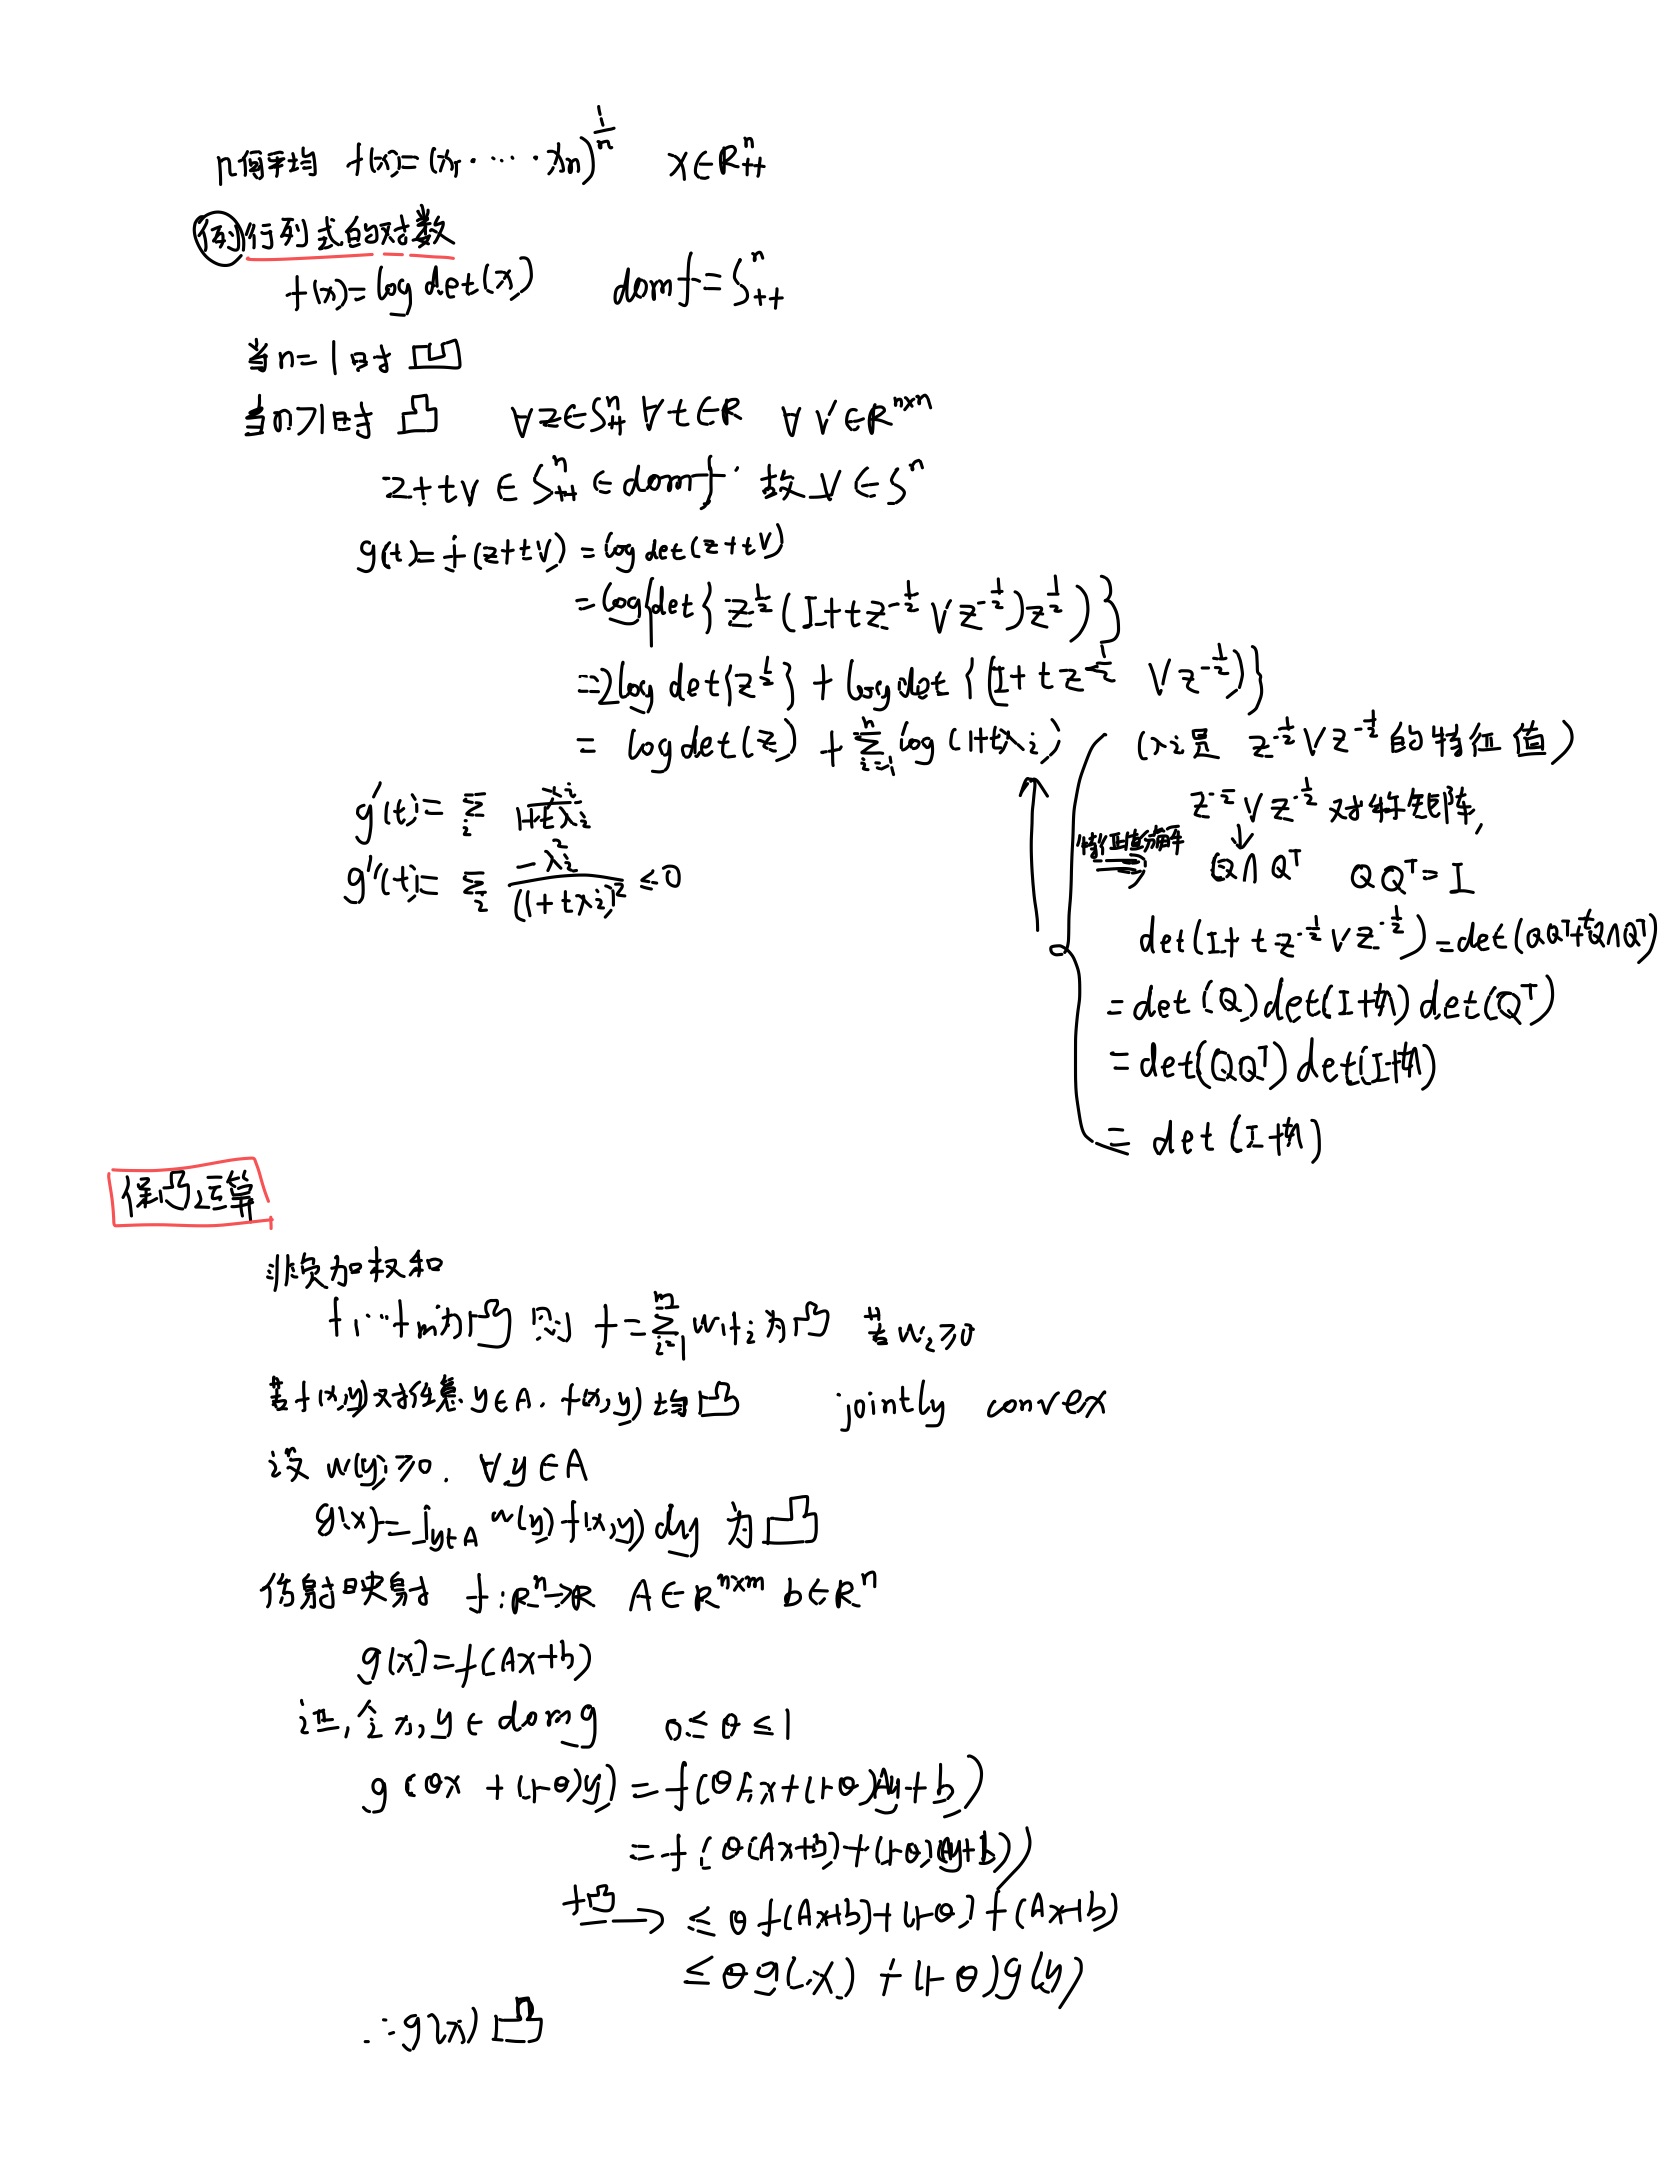 n何平均 f(x)=(x₁·····xₙ)^{1/n} x∈R₊₊ⁿ
例 行列式的对数
f(x)=log det(x) dom f=S₊₊ⁿ
当n=1时 凹
当n>1时 凸 ∀z∈S₊₊ⁿ ∀t∈R ∀V∈R^{n×n}
z+tV∈S₊₊ⁿ∈dom f. 故V∈Sⁿ
g(t)=f(z+tV)=log det(z+tV)
=log{det{z^{1/2}(I+tz^{-1/2}Vz^{-1/2})z^{1/2})}
=2log det{z^{1/2}}+log det{(I+tz^{-1/2}Vz^{-1/2})}
=log det(z)+∑_{i=1}^{n}log(1+tλᵢ)
(λᵢ是 z^{-1/2}Vz^{-1/2}的特征值)
z^{-1/2}Vz^{-1/2}对称矩阵,
特征值分解 ⟹ ↓
QΛQᵀ QQᵀ=I
det(I+tz^{-1/2}Vz^{-1/2})=det(QQᵀ+tQΛQᵀ)
=det(Q)det(I+tΛ)det(Qᵀ)
=det(QQᵀ)det(I+tΛ)
=det(I+tΛ)
g'(t)=∑ᵢ λᵢ/(1+tλᵢ)
g''(t)=∑ᵢ -λᵢ²/(1+tλᵢ)² ≤0
保凸运算
非负加权和
f₁…fₘ为凸 则 f=∑_{i=1}^{m}wᵢfᵢ为凸 若wᵢ≥0
若f(x,y)对任意y∈A. f(x,y)均凸 jointly convex
设w(y)≥0. ∀y∈A
g(x)=∫_{y∈A}w(y)f(x,y)dy 为凸
仿射映射 f:Rⁿ→R A∈R^{n×m} b∈Rⁿ
g(x)=f(Ax+b)
证,令x,y∈dom g 0≤θ≤1
g(θx+(1-θ)y)=f(θAx+(1-θ)Ay+b)
=f(θ(Ax+b)+(1-θ)(Ay+b))
f凸 → ≤θf(Ax+b)+(1-θ)f(Ax+b)
≤θg(x)+(1-θ)g(y)
∴g(x)凸